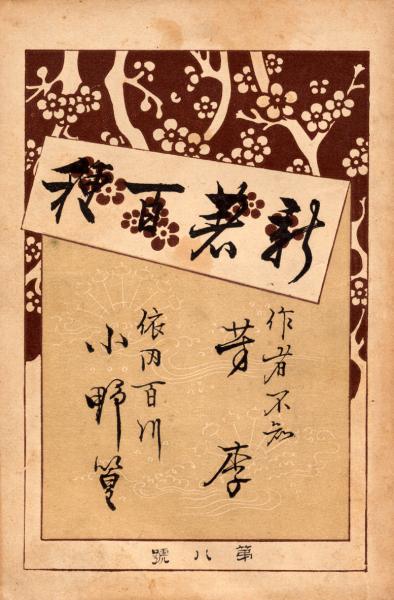 新著百種
作者不知
芳李
依田百川
小野篁
第八號